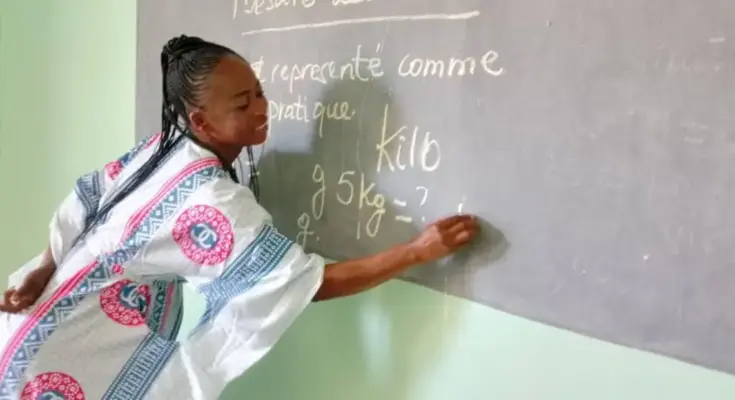 représenté comme
pratique.
Kilo
g 5kg = ?
g.